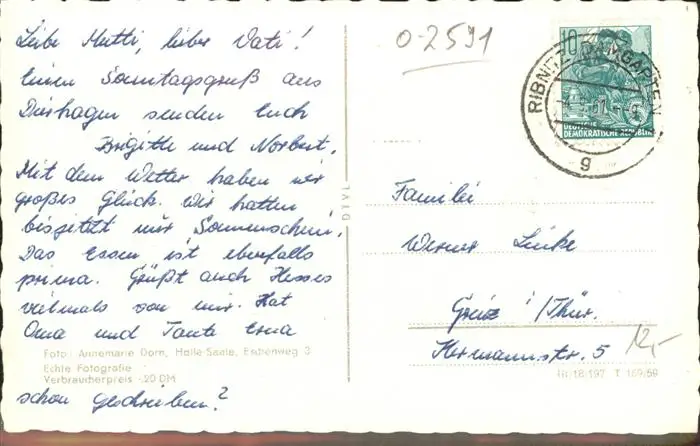 Liebe Mutti, lieber Vati!
Einen Sonntagsgruß aus
Dierhagen senden Euch
Brigitte und Norbert.
Mit dem Wetter haben wir
großes Glück. Wir hatten
bisjetzt nur Sonnenschein.
Das Essen ist ebenfalls
prima. Grüßt auch Hesses
vielmals von mir. Hat
Oma und Tante Erna
Foto: Annemarie Dorn, Halle-Saale, Eschenweg 3
Echte Fotografie
Verbraucherpreis -20 DM
schon geschrieben?
DTVL
0-2591
10
DEUTSCHE
DEMOKRATISCHE REPUBLIK
RIBNITZ-DAMGARTEN
g
Familie
Werner Linke
Greiz i/Thür.
Hermannstr. 5
12,-
T 169/59